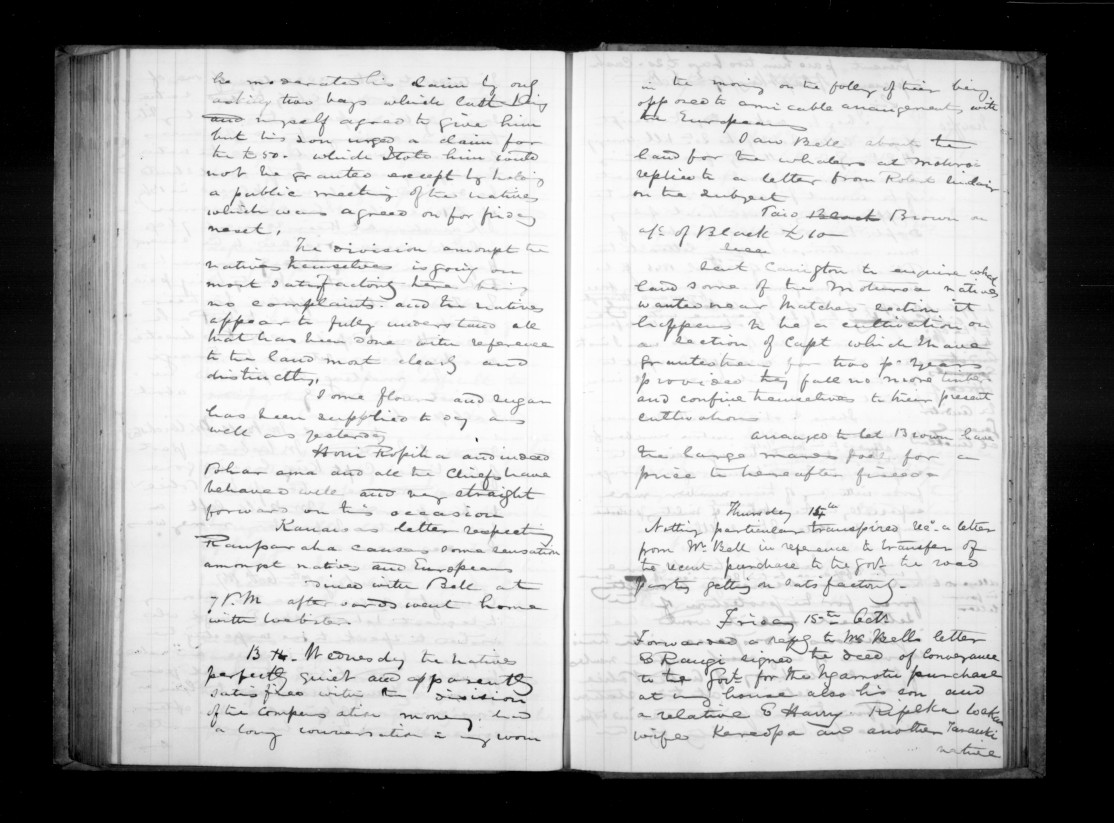 he moderated his claim by only
asking two bags which both King
and myself agreed to give him
but his son urged a claim for
the £50. which I told him could
not be granted except by holding
a public meeting of the natives
which was agreed on for friday
next.
The division amongst the
natives themselves is going on
most satisfactorily here being
no complaints and the natives
appear to fully understand all
that has been done with reference
to the land most clearly and
distinctly.
Some flour and sugar
has been supplied to day as
well as yesterday
Honi Ropiha and indeed
and all the Chiefs have
behaved well and very straight
forward on this occasion
letter respecting
Rauparaha causes some sensation
amongst natives and Europeans
dined with Bell at
7 P.M. afterwards went home
with Webster.
13th. Wednesday the natives
perfectly quiet and apparently
satisfied with the division
of the compensation money. had
a long conversation in my room
in the morning on the folly of their being
opposed to amicable arrangements with
the Europeans
Saw Bell about the
land for the whalers at Motueka
replied to a letter from Robert
on the subject
Paid Black Brown on
a/c of Black £10
Sent Carrington to enquire what
land some of the Motueka natives
wanted near section it
happens to be a cultivation on
a section of Capt which I have
granted them for two years
provided they fall no more timber
and confine themselves to their present
cultivations
arranged to let Brown have
the large mare for a
price to hereafter fixed
Thursday 14th
Nothing particular transpired recd. a letter
from Mr Bell in reference to transfer of
the recent purchase to the Govt. the road
party getting on satisfactorily.
Friday 15th Octr
Forwarded a reply to Mr Bells letter
E Rangi signed the deed of conveyance
to the Govt. for the Ngamotu purchase
at my house also his son and
a relative E Harry. Ropiha
wife Kereopa and another Taranaki
native